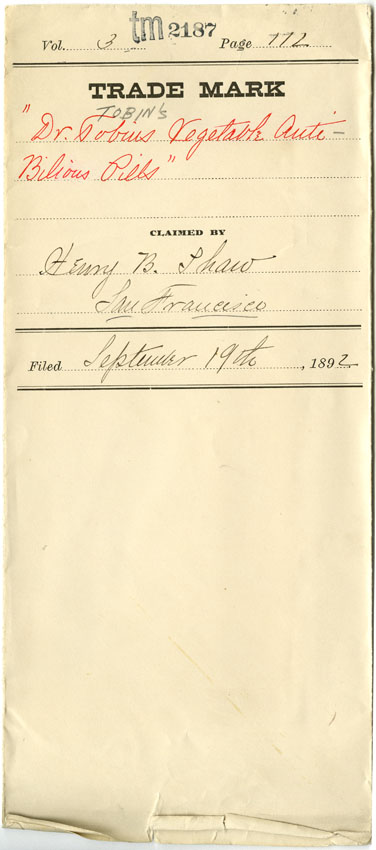 tm 2187
Vol. 3 Page 172
TRADE MARK
TOBIN'S
"Dr. Tobins Vegetable Anti-
Bilious Pills"
CLAIMED BY
Henry B. Shaw
San Francisco
Filed September 19th, 1892